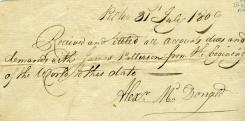 31st July 1809
Received and settled all accounts dues and
demands with James Patterson from the beginning
of the World to this date
Alexr. McDonald